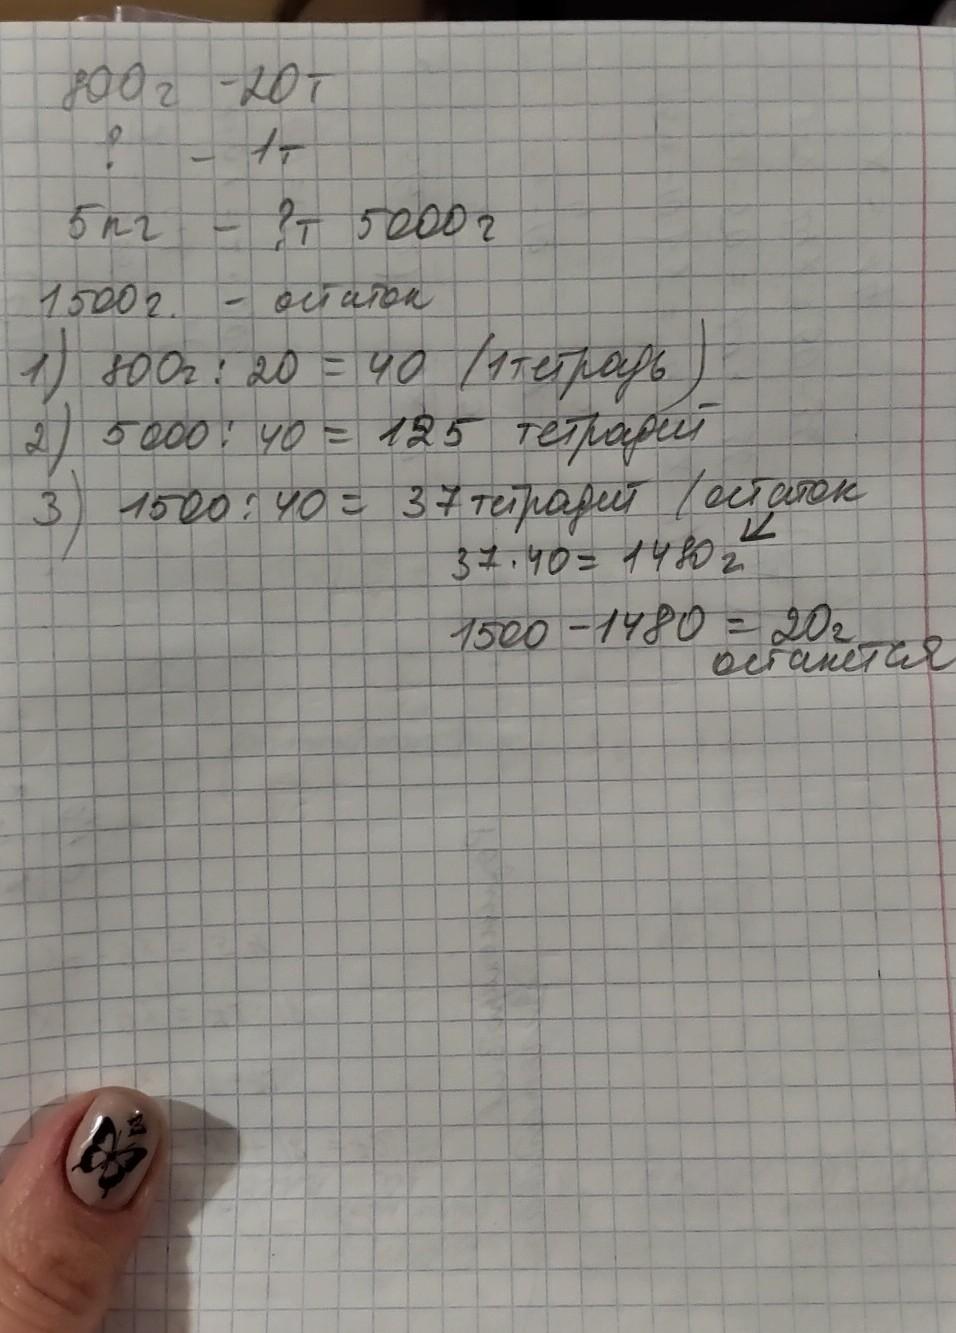 800г - 20т
? - 1т
5кг - ?т 5000г
1500г. - остаток
1) 800г : 20 = 40 (1тетрадь)
2) 5000 : 40 = 125 тетрадей
3) 1500 : 40 = 37 тетрадей (остаток
37 . 40 = 1480г
1500 - 1480 = 20г
останется